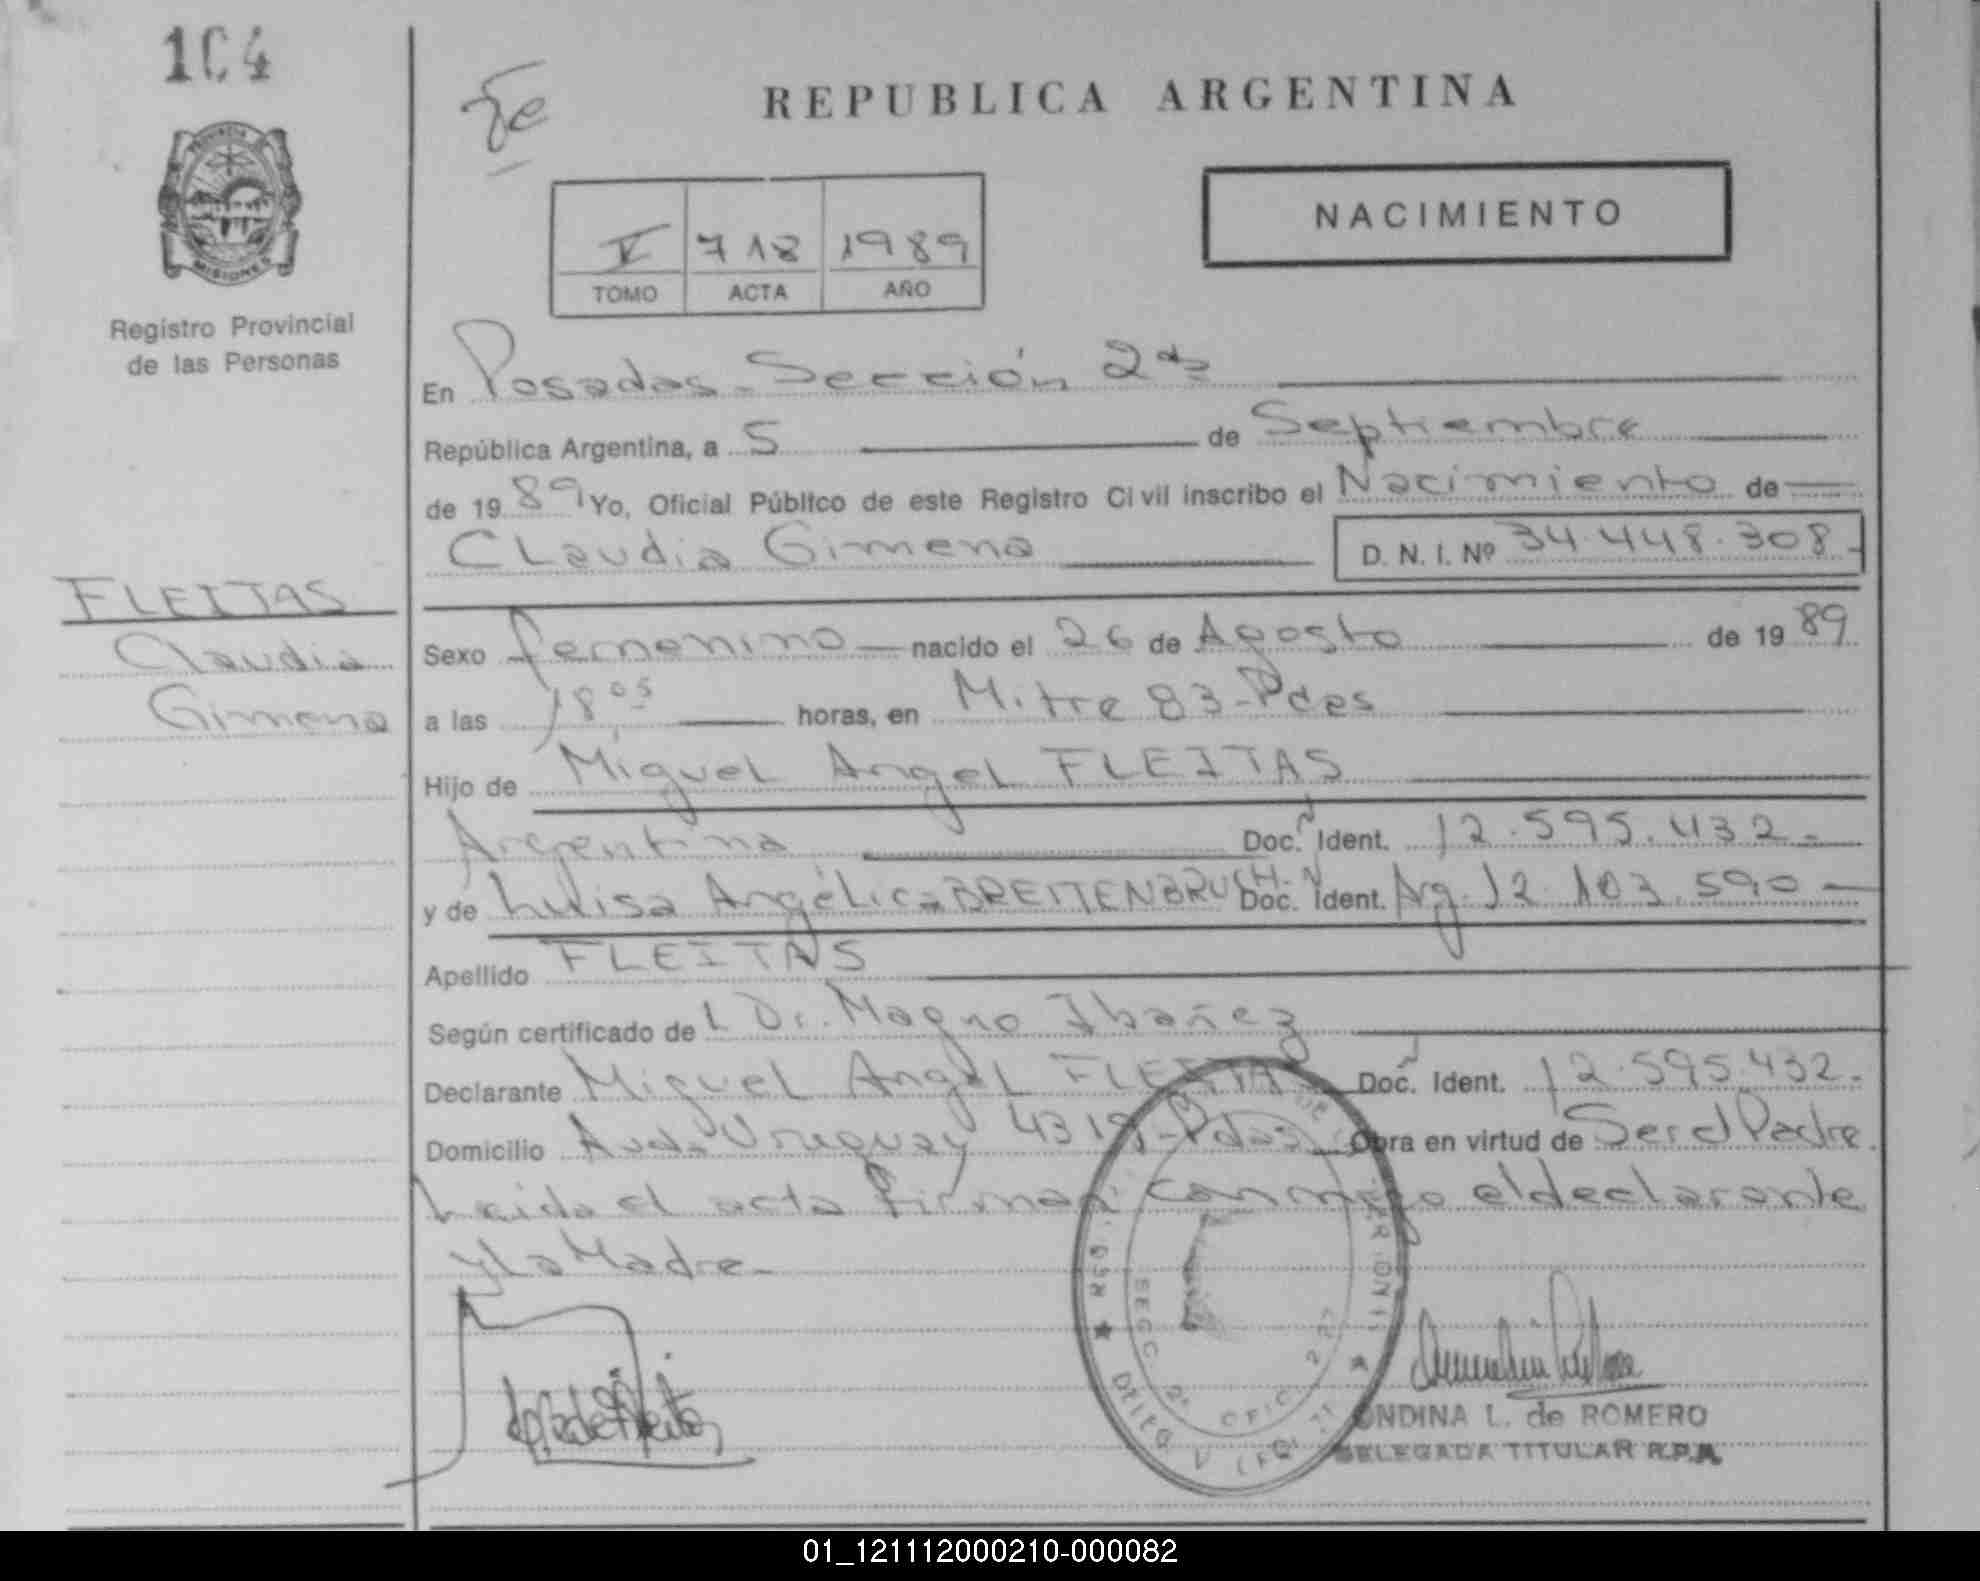 104
PROVINCIA
MISIONES
Registro Provincial
de las Personas
FLEITAS
Claudia
Gimena
REPUBLICA ARGENTINA
NACIMIENTO
V 718 1989
TOMO ACTA AÑO
En Posadas - Sección 2da
República Argentina, a 5 de Septiembre
de 1989 Yo, Oficial Público de este Registro Civil inscribo el Nacimiento de
Claudia Gimena D. N. I. Nº 34.448.308
Sexo femenino nacido el 26 de Agosto de 1989
a las 18 05 horas, en Mitre 83-Pdas
Hijo de Miguel Angel FLEITAS
Argentina Doc. Ident. 12.595.432.-
y de Luisa Angélica BREITENBRUCH.- Doc. Ident. Arg. 12.103.590
Apellido FLEITAS
Según certificado de L Dr. Magno Ibañez
Declarante Miguel Angel FLEITAS Doc. Ident. 12.595.432.-
Domicilio Avda Uruguay 4319-Pdas Obra en virtud de Ser el Padre.
Leida el acta firman conmigo el declarante
y La Madre.-
SECC. 2ª OFIC.
ONDINA L. de ROMERO
DELEGADA TITULAR R.P.P.
01_121112000210-000082